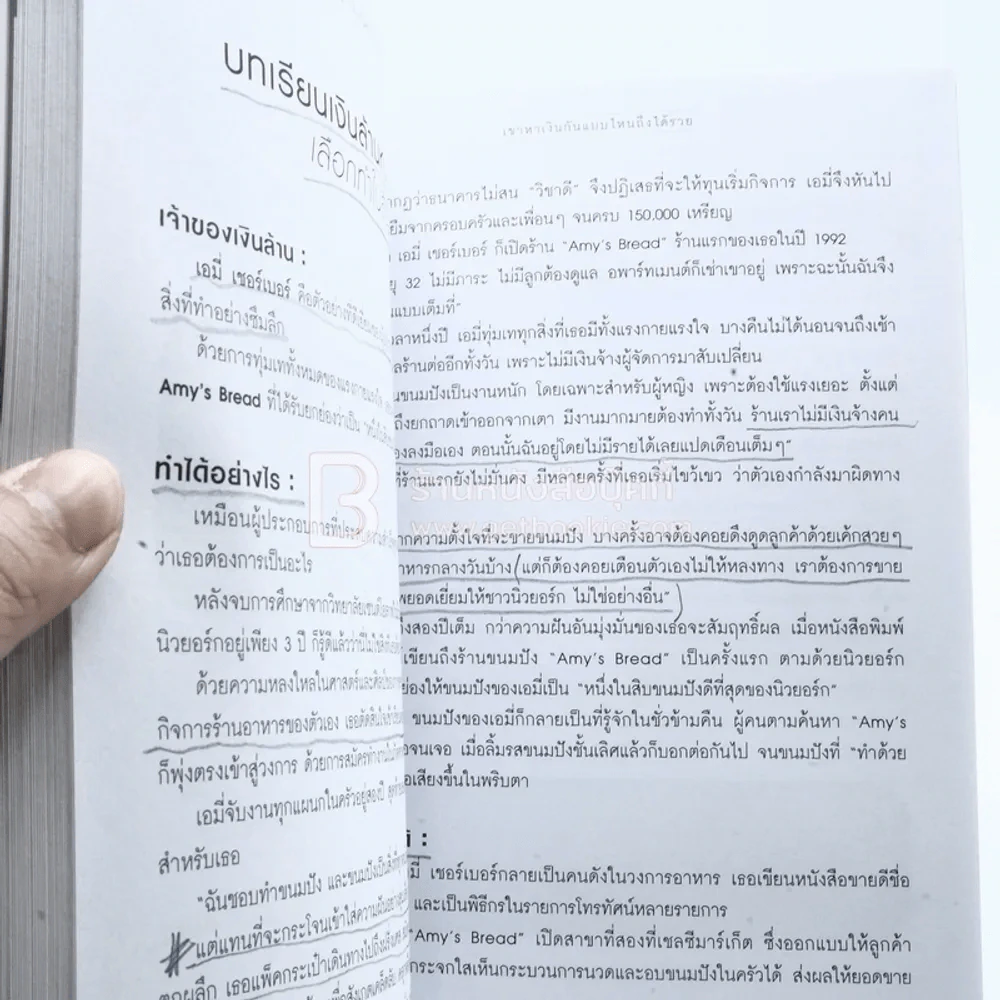 บทเรียนเงินล้าน
เลือกทำ
เจ้าของเงินล้าน :
เอมี่ เชอร์เบอร์ คือตัวอย่างที่ดี
สิ่งที่ทำอย่างซึมลึก
ด้วยการทุ่มเททั้งหมดของแรงกายแรงใจ
Amy's Bread ที่ได้รับยกย่องว่าเป็น
ทำได้อย่างไร :
เหมือนผู้ประกอบการที่ประสบ
ว่าเธอต้องการเป็นอะไร
หลังจบการศึกษาจากวิทยาลัย
นิวยอร์กอยู่เพียง 3 ปี ก็รู้ดีแล้วว่านี่ไม่ใช่
ด้วยความหลงใหลในศาสตร์และศิลป์
กิจการร้านอาหารของตัวเอง เธอตัดสินใจ
ก็พุ่งตรงเข้าสู่วงการ ด้วยการสมัครทำงาน
เอมี่จับงานทุกแผนกในครัวอยู่สองปี
สำหรับเธอ
"ฉันชอบทำขนมปัง และขนมปังเป็นสิ่งที่
#แต่แทนที่จะกระโจนเข้าใส่ความฝันอย่าง
ตกผลึก เธอแพ็คกระเป๋าเดินทางไปถึงฝรั่งเศส
เขาหาเงินกันแบบไหนถึงได้รวย
ากฏว่าธนาคารไม่สน "วิชาดี" จึงปฏิเสธที่จะให้ทุนเริ่มกิจการ เอมี่จึงหันไป
ยืมจากครอบครัวและเพื่อนๆ จนครบ 150,000 เหรียญ
เอมี่ เชอร์เบอร์ ก็เปิดร้าน "Amy's Bread" ร้านแรกของเธอในปี 1992
ยุ 32 ไม่มีภาระ ไม่มีลูกต้องดูแล อพาร์ทเมนต์ก็เช่าเขาอยู่ เพราะฉะนั้นฉันจึง
นแบบเต็มที่"
วลาหนึ่งปี เอมี่ทุ่มเททุกสิ่งที่เธอมีทั้งแรงกายแรงใจ บางคืนไม่ได้นอนจนถึงเช้า
ลร้านต่ออีกทั้งวัน เพราะไม่มีเงินจ้างผู้จัดการมาสับเปลี่ยน
นขนมปังเป็นงานหนัก โดยเฉพาะสำหรับผู้หญิง เพราะต้องใช้แรงเยอะ ตั้งแต่
ถึงยกถาดเข้าออกจากเตา มีงานมากมายต้องทำทั้งวัน ร้านเราไม่มีเงินจ้างคน
องลงมือเอง ตอนนั้นฉันอยู่โดยไม่มีรายได้เลยแปดเดือนเต็มๆ"
ที่ร้านแรกยังไม่มั่นคง มีหลายครั้งที่เธอเริ่มไขว้เขว ว่าตัวเองกำลังมาผิดทาง
B ร้านหนังสือบุ๊คกี้
www.getbookie.com
ากความตั้งใจที่จะขายขนมปัง บางครั้งอาจต้องคอยดึงดูดลูกค้าด้วยเค้กสวยๆ
าหารกลางวันบ้าง (แต่ก็ต้องคอยเตือนตัวเองไม่ให้หลงทาง เราต้องการขาย
พยอดเยี่ยมให้ชาวนิวยอร์ก ไม่ใช่อย่างอื่น")
งสองปีเต็ม กว่าความฝันอันมุ่งมั่นของเธอจะสัมฤทธิ์ผล เมื่อหนังสือพิมพ์
เขียนถึงร้านขนมปัง "Amy's Bread" เป็นครั้งแรก ตามด้วยนิวยอร์ก
ย่องให้ขนมปังของเอมี่เป็น "หนึ่งในสิบขนมปังดีที่สุดของนิวยอร์ก"
ขนมปังของเอมี่ก็กลายเป็นที่รู้จักในชั่วข้ามคืน ผู้คนตามค้นหา "Amy's
จนเจอ เมื่อลิ้มรสขนมปังชั้นเลิศแล้วก็บอกต่อกันไป จนขนมปังที่ "ทำด้วย
อเสียงขึ้นในพริบตา
มี่ เชอร์เบอร์กลายเป็นคนดังในวงการอาหาร เธอเขียนหนังสือขายดีชื่อ
และเป็นพิธีกรในรายการโทรทัศน์หลายรายการ
"Amy's Bread" เปิดสาขาที่สองที่เชลซีมาร์เก็ต ซึ่งออกแบบให้ลูกค้า
กระจกใสเห็นกระบวนการนวดและอบขนมปังในครัวได้ ส่งผลให้ยอดขาย